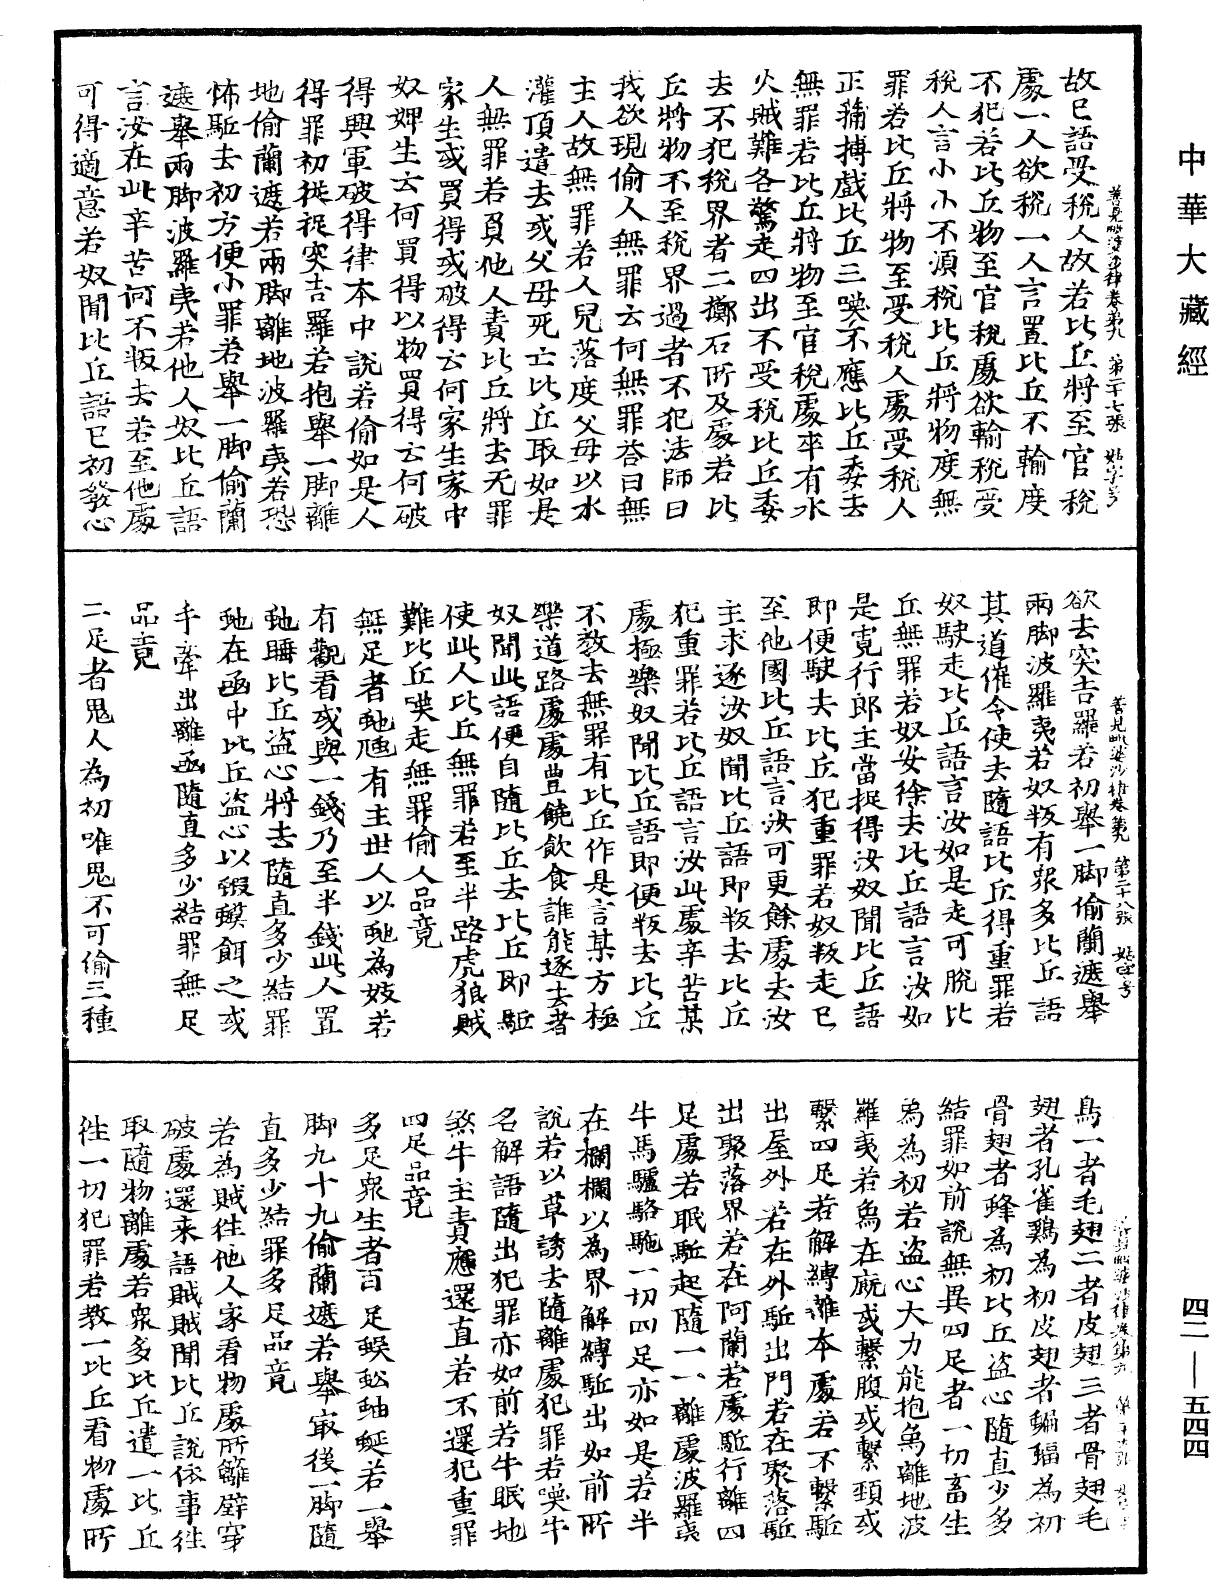 中華大藏經
故已語受稅人故若比丘將至官稅
處一人欲稅一人言置比丘不輸度
不犯若比丘物至官稅處欲輸稅受
稅人言小小不須稅比丘將物度無
罪若比丘將物至受稅人處受稅人
正蒱摶戲比丘三喚不應比丘委去
無罪若比丘將物至官稅處卒有水
火賊難各驚走四出不受稅比丘委
去不犯稅界者二擲石所及處若比
丘將物不至稅界過者不犯法師曰
我欲現偷人無罪云何無罪荅曰無
主人故無罪若人兒落度父母以水
灌頂遣去或父母死亡比丘取如是
人無罪若負他人責比丘將去无罪
家生或買得或破得云何家生家中
奴婢生云何買得以物買得云何破
得興軍破得律本中說若偷如是人
得罪初捉突吉羅若抱舉一腳離
地偷蘭遮若兩腳離地波羅夷若恐
怖駈去初方便小罪若舉一腳偷蘭
遮舉兩腳波羅夷若他人奴比丘語
言汝在此辛苦何不叛去若至他處
可得適意若奴聞比丘語已初發心
善見毗婆沙律卷第九 第二十七張 姑字号
欲去突吉羅若初舉一腳偷蘭遮舉
兩腳波羅夷若奴叛有眾多比丘語
其道催令使去隨語比丘得重罪若
奴駛走比丘語言汝如是走可脫比
丘無罪若奴安徐去比丘語言汝如
是寬行郎主當捉得汝奴聞比丘語
即便駛去比丘犯重罪若奴叛走已
至他國比丘語言汝可更餘處去汝
主求逐汝奴聞比丘語即叛去比丘
犯重罪若比丘語言汝此處辛苦某
處極樂奴聞比丘語即便叛去比丘
不教去無罪有比丘作是言某方極
樂道路處處豊饒飲食誰能逐去者
奴聞此語便自隨比丘去比丘即駈
使此人比丘無罪若至半路虎狼賊
難比丘喚走無罪偷人品竟
無足者虵虺有主世人以虵為妓若
有觀看或與一錢乃至半錢此人置
虵睡比丘盜心將去隨直多少結罪
虵在凾中比丘盜心以蝦蟆餌之或
手牽出離凾隨直多少結罪無足
品竟
二足者鬼人為初唯鬼不可偷三種
善見毗婆沙律卷第九 第二十八張 姑字号
鳥一者毛翅二者皮翅三者骨翅毛
翅者孔雀鷄為初皮翅者蝙蝠為初
骨翅者蜂為初比丘盜心隨直少多
結罪如前說無異四足者一切畜生
為為初若盜心大力能抱為離地波
羅夷若為在廐或繫腹或繫頸或
繫四足若解縛離本處若不繫駈
出屋外若在外駈出門若在聚落駈
出聚落界若在阿蘭若處駈行離四
足處若眠駈起隨一一離處波羅夷
牛馬驢駱駞一切四足亦如是若半
在欄欄以為界解縛駈出如前所
說若以草誘去隨離處犯罪若喚牛
名解語隨出犯罪亦如前若牛眠地
煞牛主責應還直若不還犯重罪
四足品竟
多足眾生者百足蜈蚣蚰蜒若一舉
腳九十九偷蘭遮若舉寂後一腳隨
直多少結罪多足品竟
若為賊往他人家看物處所籬壁穿
破處還来語賊賊聞比丘說依事往
取隨物離處若眾多比丘遣一比丘
往一切犯罪若教一比丘看物處所
四二—五四四